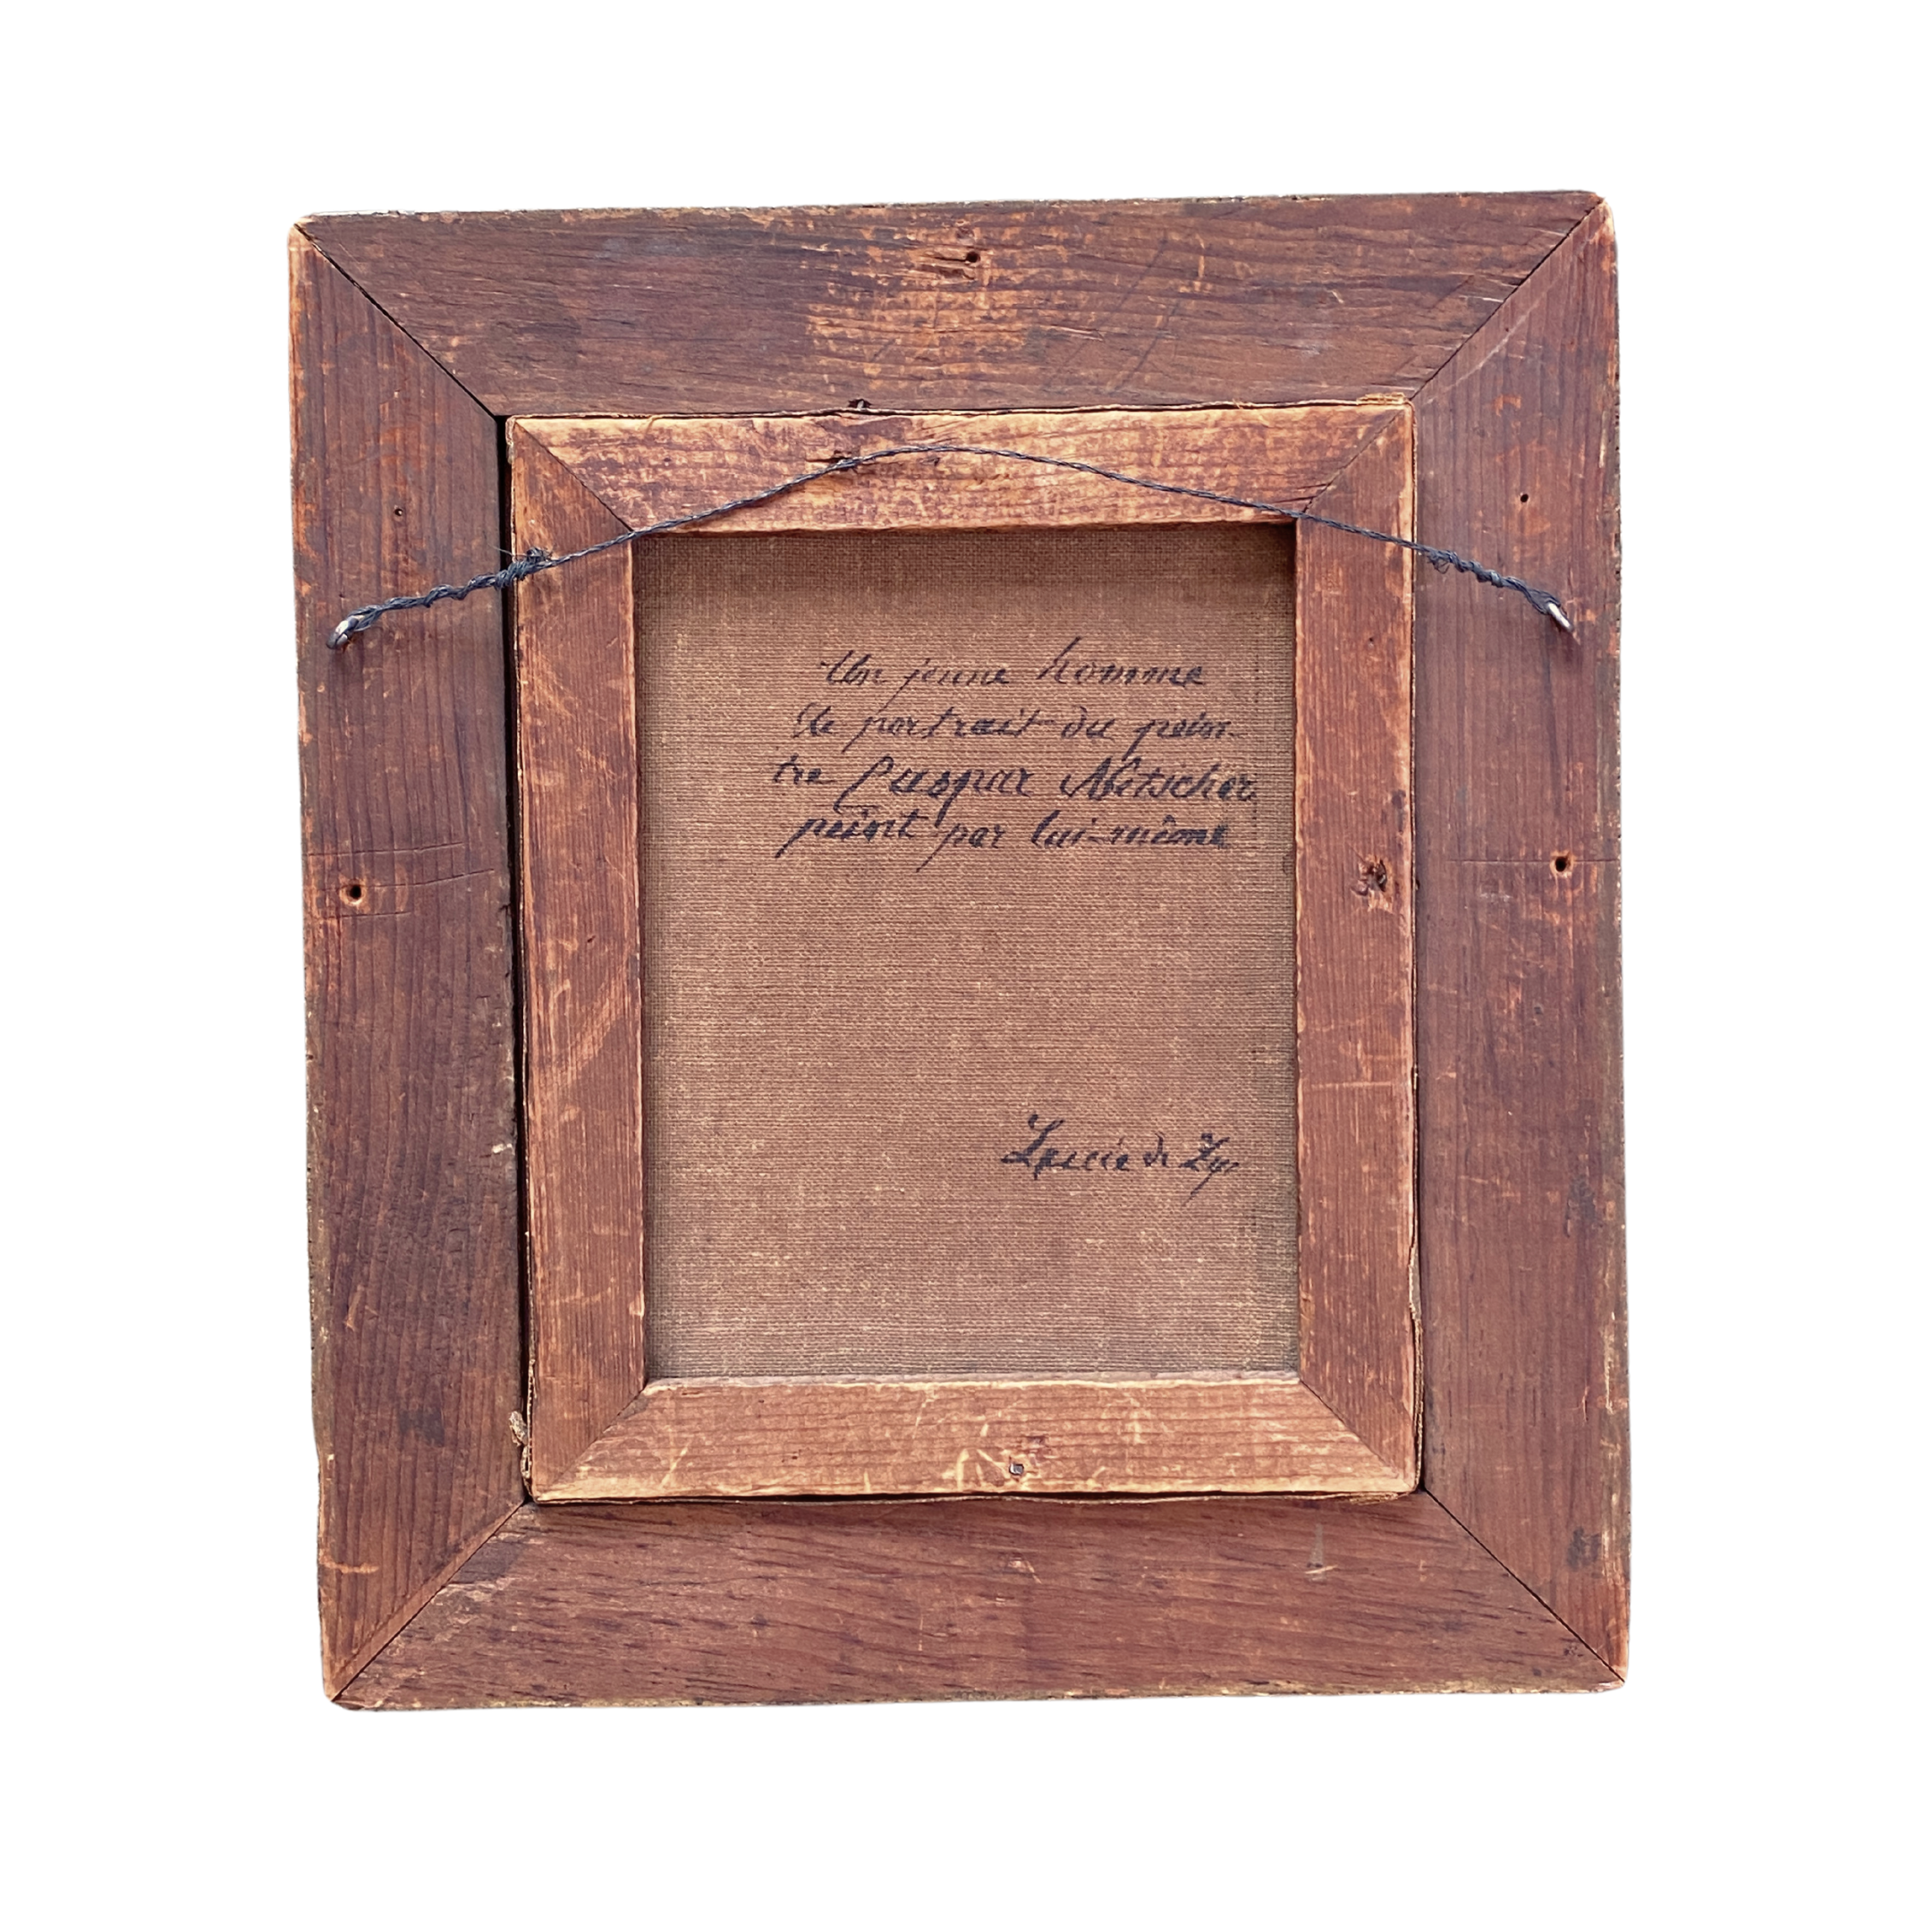 Un jeune homme
Le portrait du pein-
tre Gaspar Netscher
peint par lui-même
de